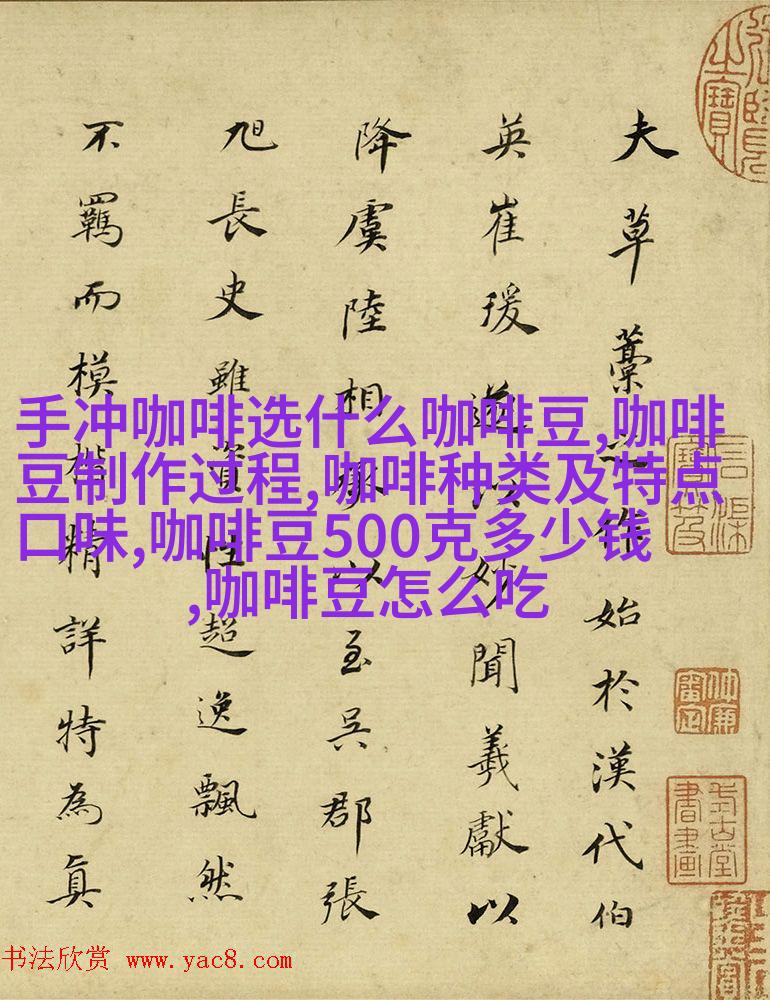 夫草藁之作始於漢代伯
英崔瑗以妙聞羲獻以
降虞陸相承以至吳郡張
旭長史雖資性超逸飄然
不羈而模楷精詳特為真
手冲咖啡选什么咖啡豆,咖啡
豆制作过程,咖啡种类及特点
口味,咖啡豆500克多少钱
,咖啡豆怎么吃
书法欣赏 www.yac8.com